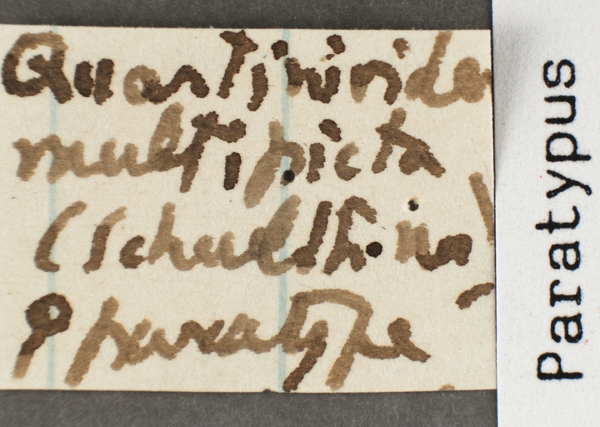 Quartinioides
multipicta
(Schulth. in
♀ paratype
Paratypus